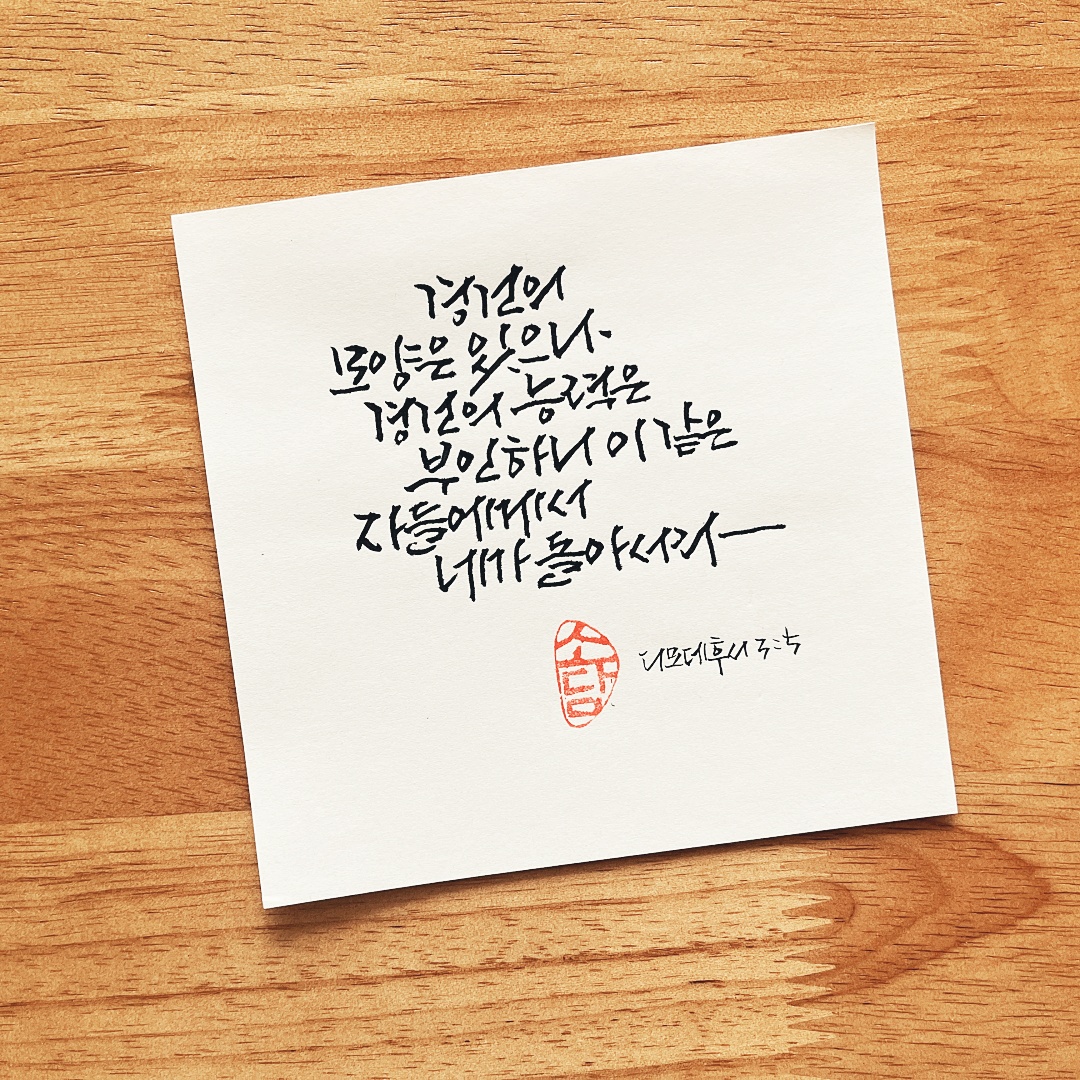 경건의
모양은 있으나
경건의 능력은
부인하니 이같은
자들에게서
네가 돌아서라
소담
디모데후서 3:5